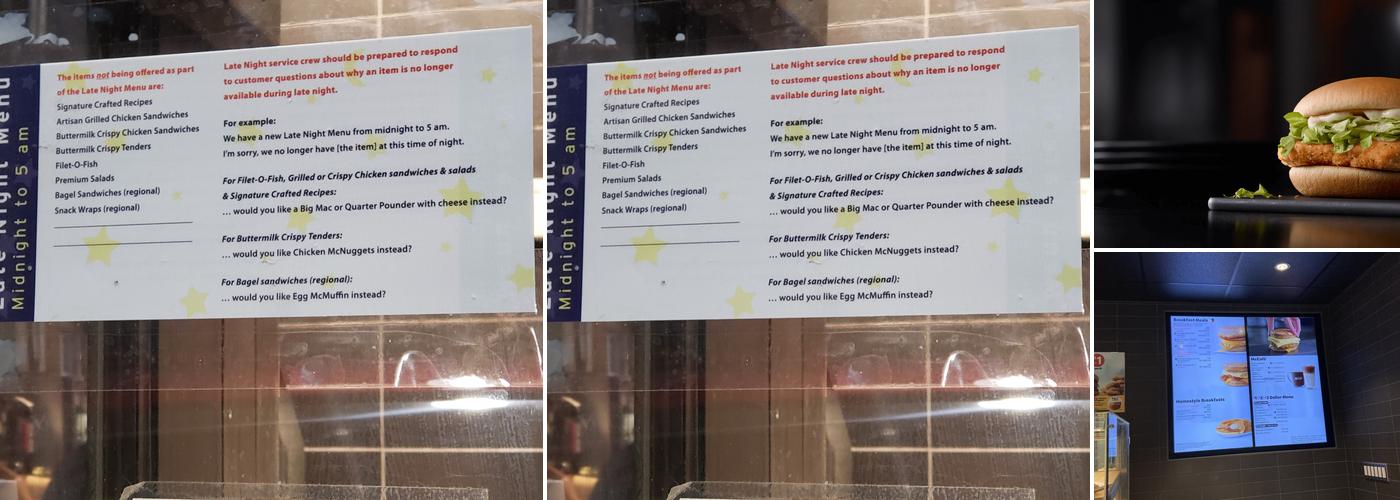 Late Night Menu
Midnight to 5 am
The items not being offered as part
of the Late Night Menu are:
Signature Crafted Recipes
Artisan Grilled Chicken Sandwiches
Buttermilk Crispy Chicken Sandwiches
Buttermilk Crispy Tenders
Filet-O-Fish
Premium Salads
Bagel Sandwiches (regional)
Snack Wraps (regional)
Late Night service crew should be prepared to respond
to customer questions about why an item is no longer
available during late night.
For example:
We have a new Late Night Menu from midnight to 5 am.
I'm sorry, we no longer have [the item] at this time of night.
For Filet-O-Fish, Grilled or Crispy Chicken sandwiches & salads
& Signature Crafted Recipes:
... would you like a Big Mac or Quarter Pounder with cheese instead?
For Buttermilk Crispy Tenders:
... would you like Chicken McNuggets instead?
For Bagel sandwiches (regional):
... would you like Egg McMuffin instead?
Late Night Menu
Midnight to 5 am
The items not being offered as part
of the Late Night Menu are:
Signature Crafted Recipes
Artisan Grilled Chicken Sandwiches
Buttermilk Crispy Chicken Sandwiches
Buttermilk Crispy Tenders
Filet-O-Fish
Premium Salads
Bagel Sandwiches (regional)
Snack Wraps (regional)
Late Night service crew should be prepared to respond
to customer questions about why an item is no longer
available during late night.
For example:
We have a new Late Night Menu from midnight to 5 am.
I'm sorry, we no longer have [the item] at this time of night.
For Filet-O-Fish, Grilled or Crispy Chicken sandwiches & salads
& Signature Crafted Recipes:
... would you like a Big Mac or Quarter Pounder with cheese instead?
For Buttermilk Crispy Tenders:
... would you like Chicken McNuggets instead?
For Bagel sandwiches (regional):
... would you like Egg McMuffin instead?
Breakfast Meals
McCafé
Homestyle Breakfasts
Dollar Menu